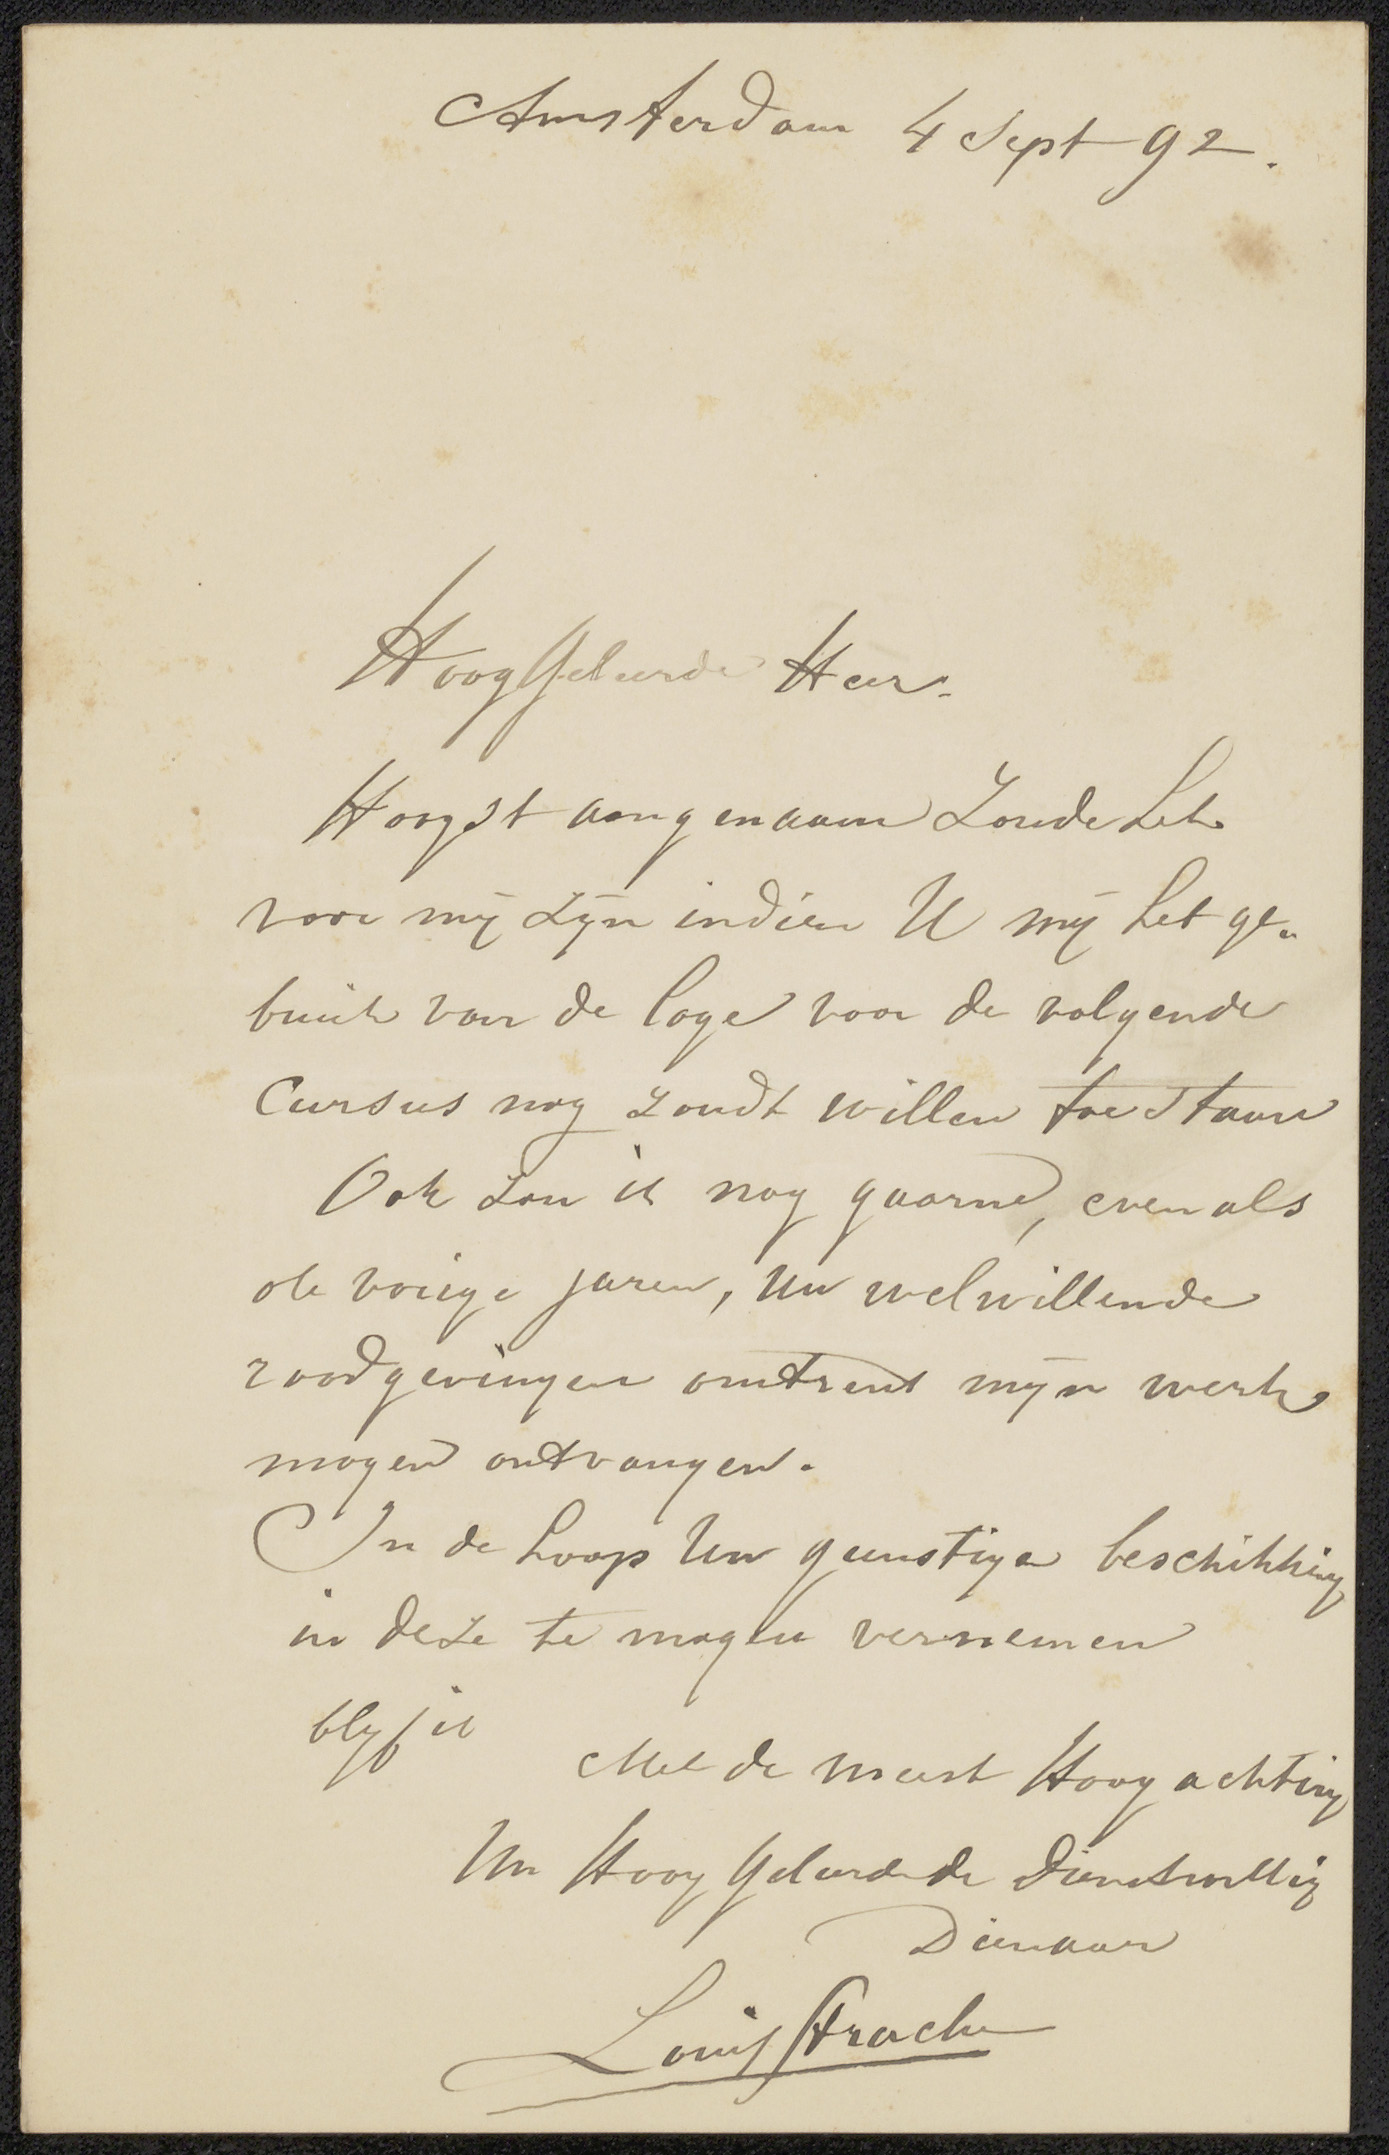 Amsterdam 4 Sept 92.
HoogGeleerde Heer.
Hoogst aangenaam zoude het
voor mij zijn indien U mij het ge„
bruik van de loge voor de volgende
Cursus nog zoudt willen toestaan
Ook zou ik nog gaarne, evenals
de vorige jaren, Uw welwillende
raadgevingen omtrent mijn werk
mogen ontvangen.
In de hoop Uw gunstige beschikking
in deze te mogen vernemen
blijf ik
Met de meest Hoogachting
Uw HoogGeleerde de Dienstwillig
Dienaar
Louis Strache